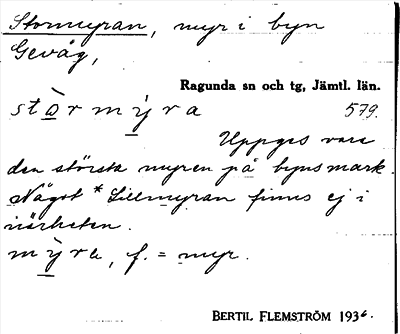 Stormyran, myr i byn
Gevåg,
Ragunda sn och tg, Jämtl. län.
stòrmỳra 579.
Uppges vara
den största myren på byns mark.
Något *Lillmyran finns ej i
närheten.
mỳra, f. = myr.
BERTIL FLEMSTRÖM 1936.